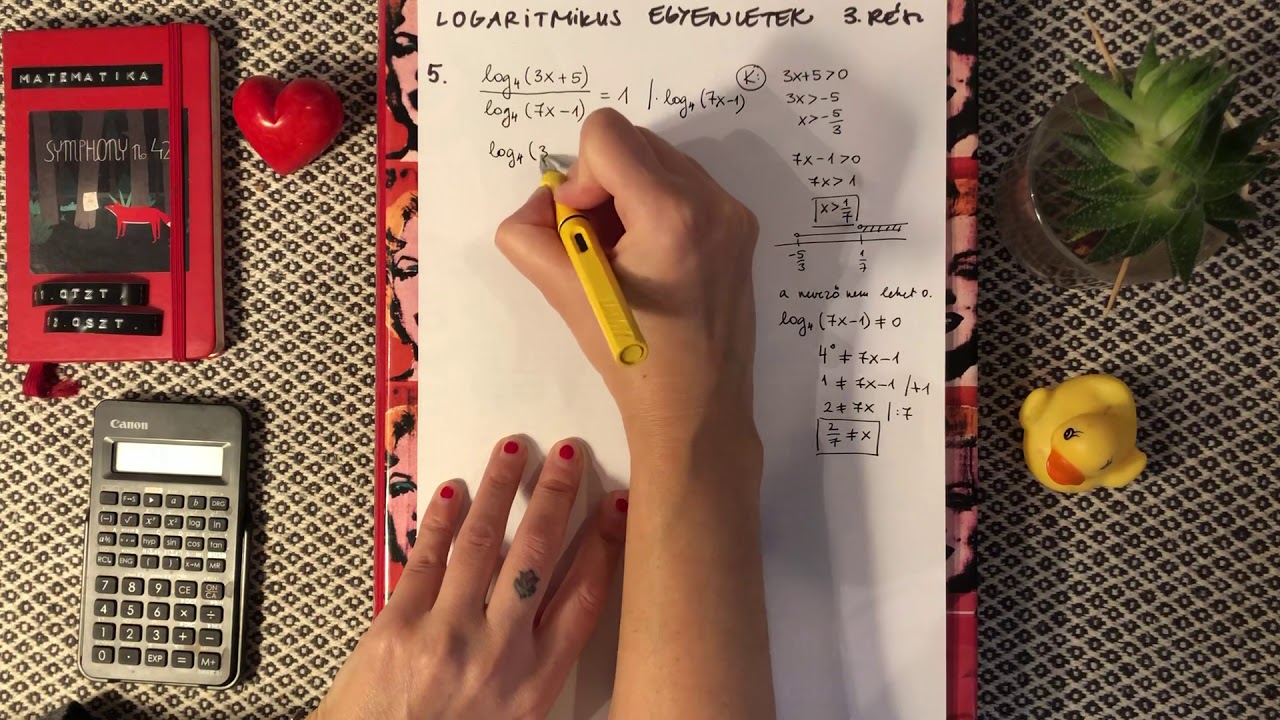 LOGARITMIKUS EGYENLETEK 3. RÉSZ
5.
log₄(3x+5)
log₄(7x-1)
= 1 /· log₄(7x-1)
log₄(3
K:
3x+5>0
3x>-5
x>-5/3
7x-1>0
7x>1
x>1/7
-5/3 1/7
a nevező nem lehet 0.
log₄(7x-1)≠0
4⁰≠7x-1
1≠7x-1 /+1
2≠7x /:7
2/7≠x
MATEMATIKA
SYMPHONY no 42
11.OSZT.
12.OSZT.
Canon
DRG
(-) √ x² log ln
hyp sin cos tan
RCL ENG ( ) X→M MR
7 8 9 CE ON/CA
4 5 6 × ÷
1 2 3 + -
0 · EXP = M+